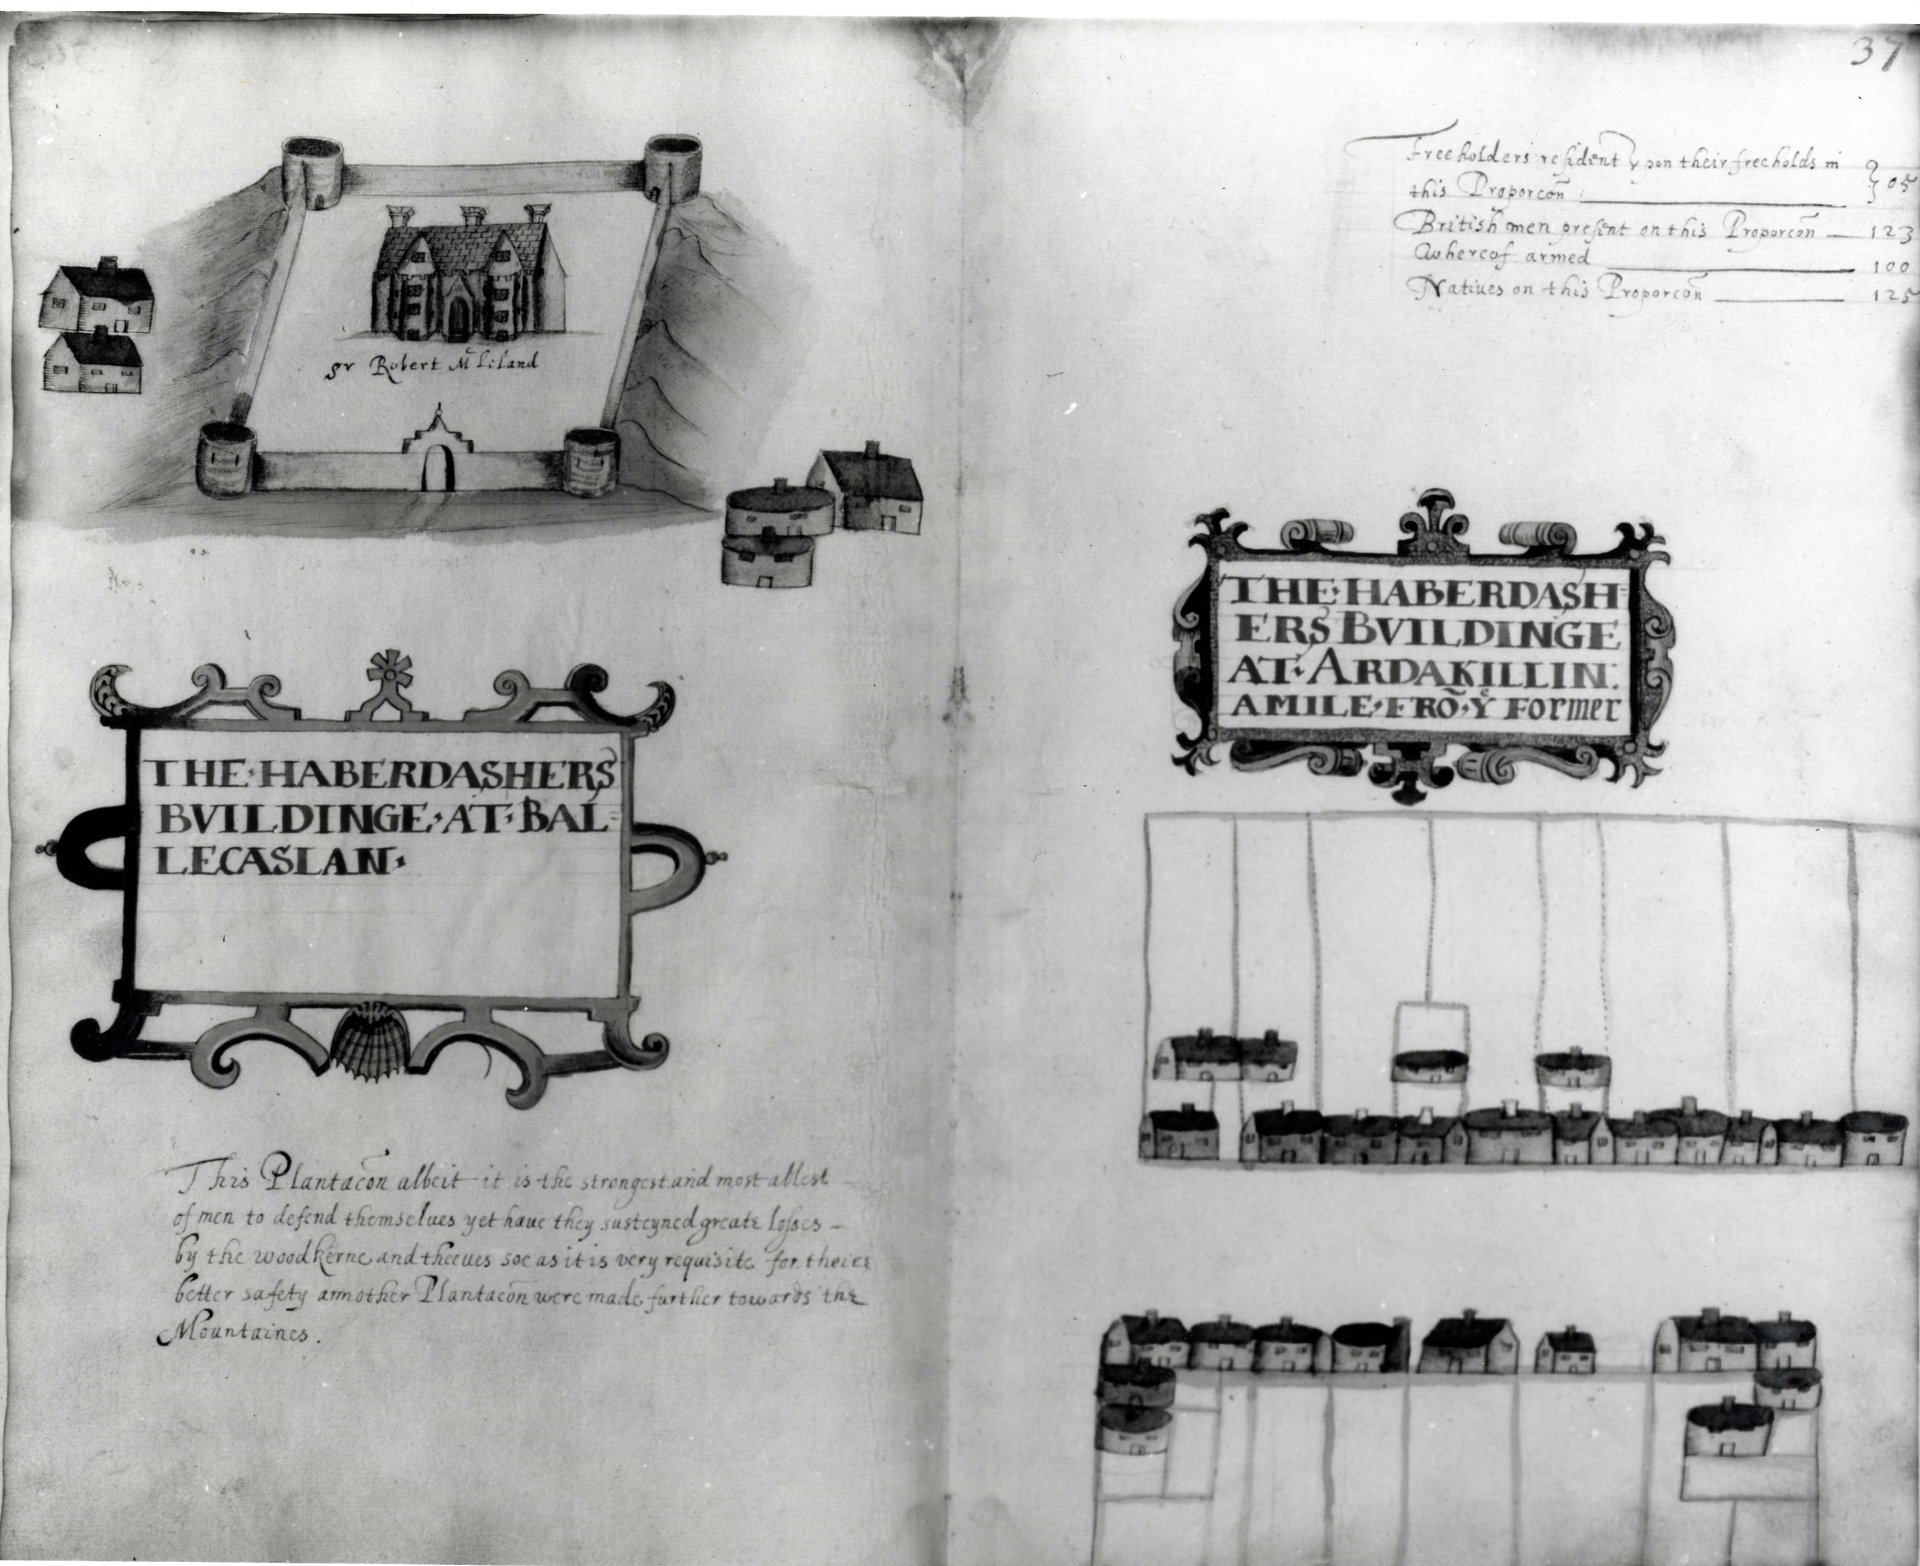 37
sr Robert Mc Leland
THE·HABERDASHERS
BVILDINGE·AT·BAL=
LECASLAN·
This Plantacōn albeit it is the strongest and most ablest
of men to defend themselues yet haue they susteyned greate losses —
by the woodkerne and theeues soe as it is very requisite for theire
better safety annother Plantacōn were made further towards the
Mountaines.
Freeholders resident vpon their freeholds in
this Proporcōn : } 05
British men present on this Proporcōn — 123
Whereof armed 100
Natiues on this Proporcōn 125
THE·HABERDASH=
ERS BVILDINGE
AT·ARDAKILLIN:
A MILE·FRŌ·Yͤ Former